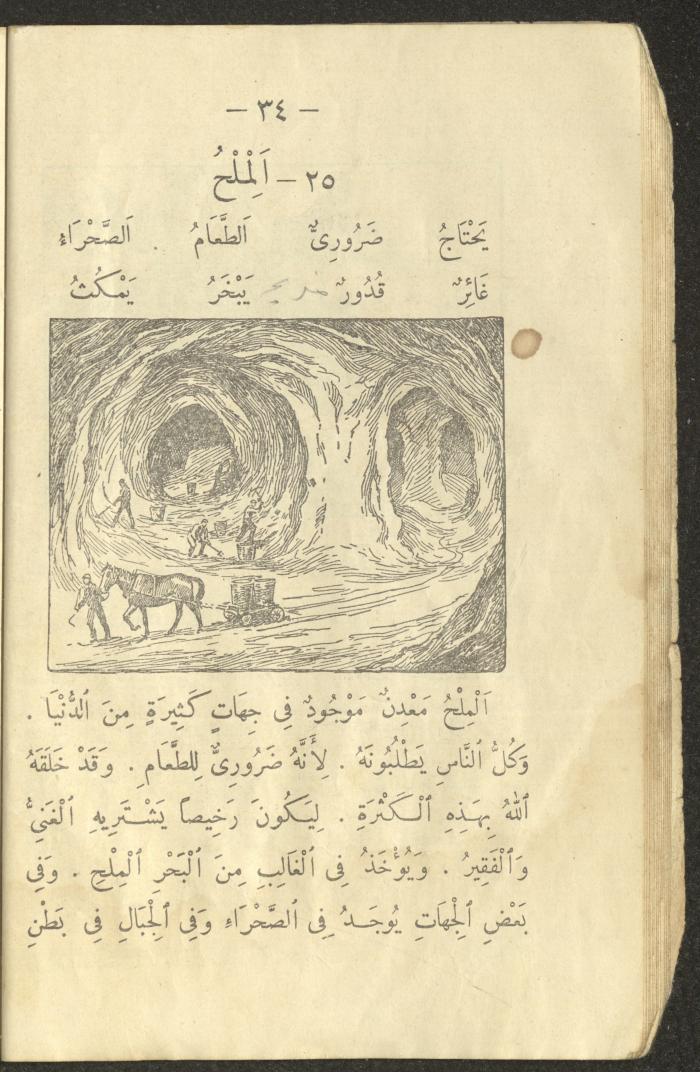 — ٣٤ —
٢٥ – اَلْمِلْحُ
يَحْتَاجُ ضَرُورِىٌّ اَلطَّعَامُ . اَلصَّحْرَاءُ
غَائِرٌ قُدُورٌ يَبْخَرُ يَمْكُثُ
اَلْمِلْحُ مَعْدِنٌ مَوْجُودٌ فِى جِهَاتٍ كَثِيرَةٍ مِنَ ٱلدُّنْيَا .
وَكُلُّ ٱلنَّاسِ يَطْلُبُونَهُ . لِأَنَّهُ ضَرُورِىٌّ لِلطَّعَامِ . وَقَدْ خَلَقَهُ
ٱللهُ بِهَذِهِ ٱلْكَثْرَةِ . لِيَكُونَ رَخِيصاً يَشْتَرِيهِ ٱلْغَنِىُّ
وَٱلْفَقِيرُ . وَيُؤْخَذُ فِى ٱلْغَالِبِ مِنَ ٱلْبَحْرِ ٱلْمِلْحِ . وَفِى
بَعْضِ ٱلْجِهَاتِ يُوجَدُ فِى ٱلصَّحْرَاءِ وَفِى ٱلْجِبَالِ فِى بَطْنِ